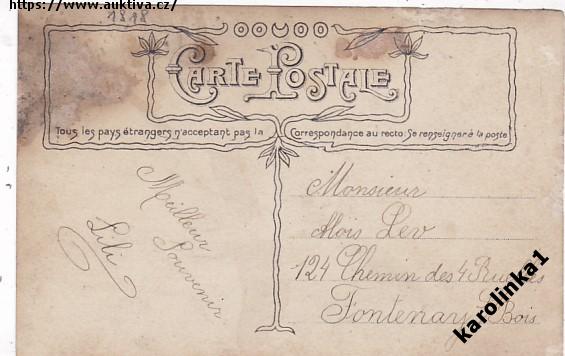 https://www.auktiva.cz/
1818
CARTE POSTALE
Tous les pays étrangers n'acceptant pas la Correspondance au recto Se renseigner à la poste
Meilleur
Souvenir
Lili
Monsieur
Alois Lev
124 Chemin des 4 Ru
Fontenay Bois
karolinka1